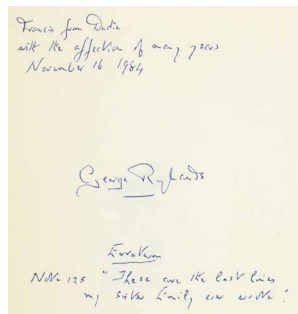 Francis from Dadie
with the affection of many years
November 16 1984
George Rylands
Erratum
Note 125 "These are the last lines
my sister Emily ever wrote".